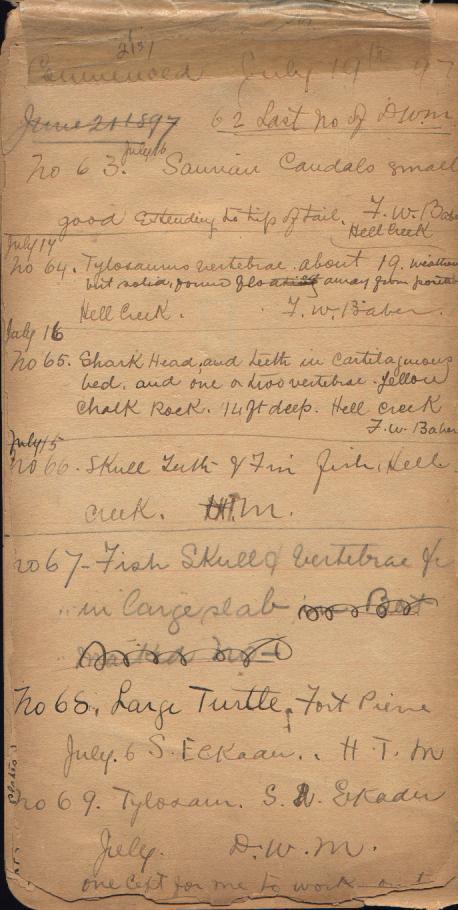 2131
Commenced July 19th 97
June 21 1897 62 Last No of D.W.M
July 16
No 63. Saurian Caudals small
good Extending to tip of tail. F.W. Bake
Hell Creek
July 14
No 64. Tylosaurus vertebrae about 19.
but solid, found away from
Hell Creek. F.W. Baker.
July 16
No 65. Shark Head, and teeth in Cartilagenous
bed. and one or two vertebrae. Yellow
Chalk Rock. 14 ft deep. Hell Creek
F.W. Baker
July 15
No 66. Skull Teeth & Fin fish, Hell
creek. H.T.M.
No 67 - Fish Skull & Vertebrae &c
" in large slab in Box
No 68. Large Turtle, Fort Pierre
July. 6 S. Eckader.. H. T. M
No 69. Tylosaur. S. Eckader
July. D.W.M.
one left for me to work out